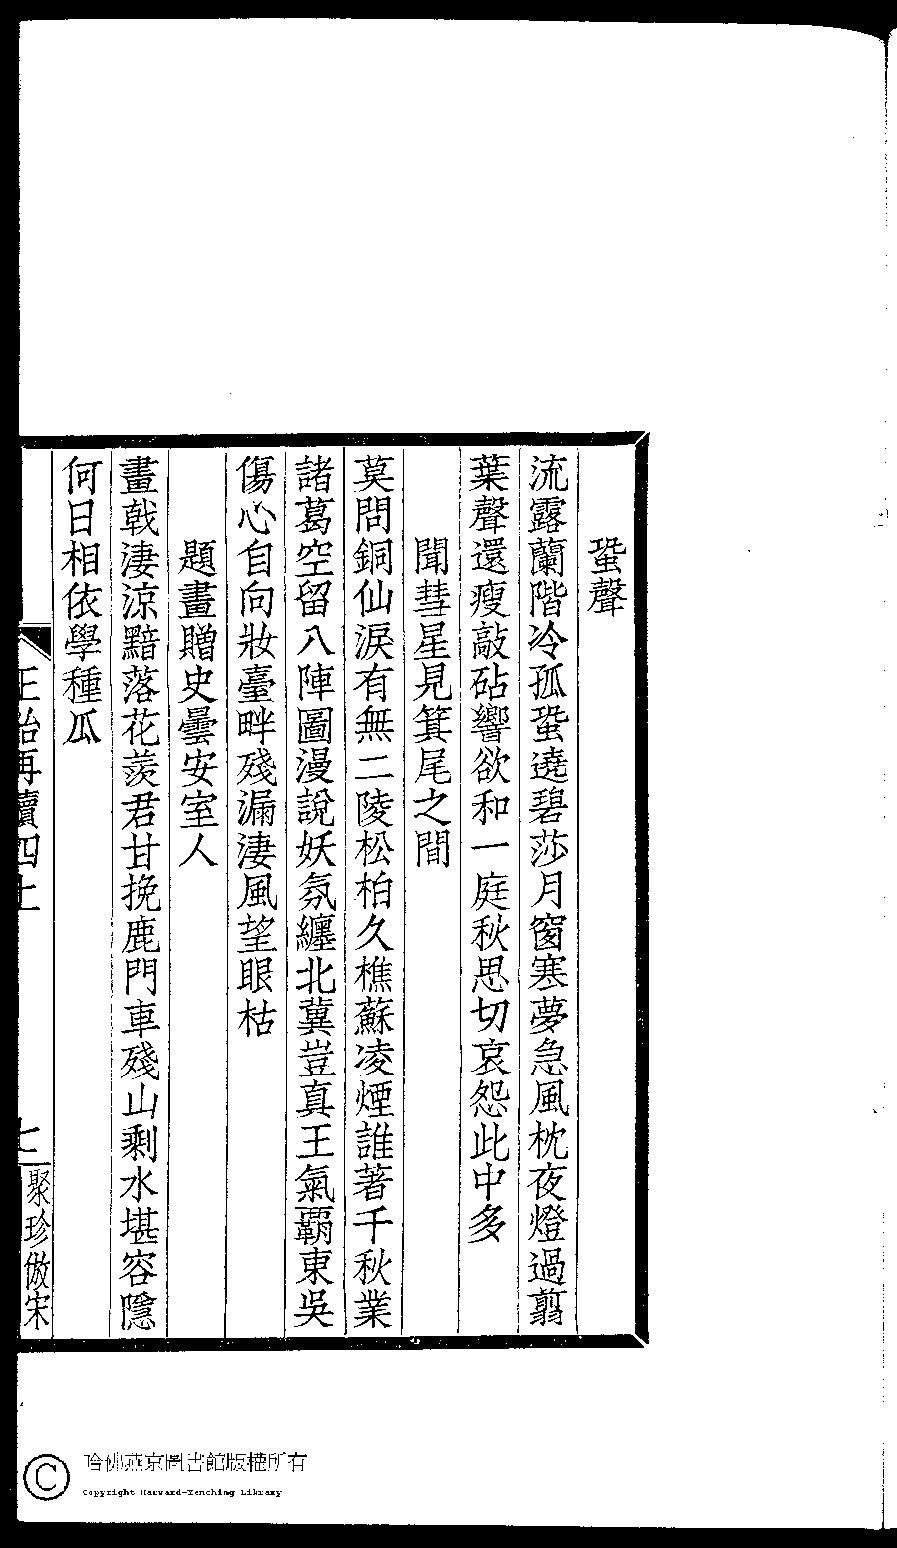 蛩聲
流露蘭階冷孤蛩遶碧莎月窗寒夢急風枕夜燈過翦
葉聲還瘦敲砧響欲和一庭秋思切哀怨此中多
聞彗星見箕尾之間
莫問銅仙淚有無二陵松柏久樵蘇凌煙誰著千秋業
諸葛空留八陣圖漫說妖氛纏北冀豈真王氣霸東吳
傷心自向妝臺畔殘漏淒風望眼枯
題畫贈史曇安室人
畫戟淒涼黯落花羨君甘挽鹿門車殘山剩水堪容隱
何日相依學種瓜
再續四上
七
聚珍倣宋
哈佛燕京圖書館版權所有
Copyright Harvard-Yenching Library